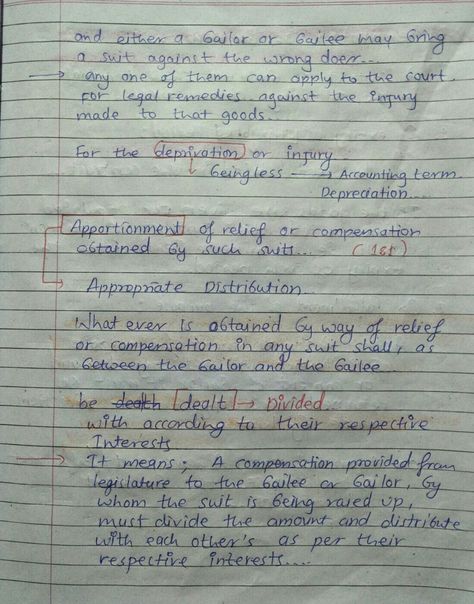 and either a bailor or bailee may bring
a suit against the wrong doer...
→ any one of them can apply to the court
for legal remedies against the injury
made to that goods...
For the deprivation or injury
↓ being less → Accounting term
Depreciation...
Apportionment of relief or compensation
obtained by such suits... (181)
Appropriate Distribution...
What ever is obtained by way of relief
or compensation in any suit shall, as
between the bailor and the bailee...
be death dealt → Divided
with according to their respective
Interests
→ It means; A compensation provided from
legislature to the bailee or bailor, by
whom the suit is being raied up,
must divide the amount and distribute
with each other's as per their
respective interests....